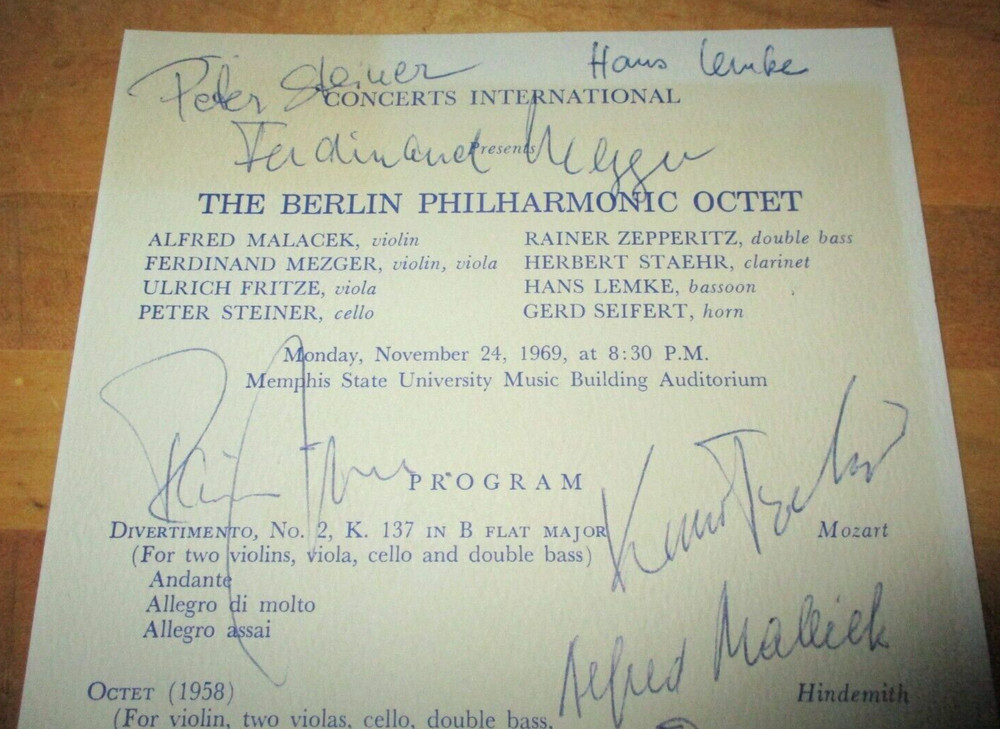 Peter Steiner
Hans Lemke
CONCERTS INTERNATIONAL
Ferdinand Mezger
Presents
THE BERLIN PHILHARMONIC OCTET
ALFRED MALACEK, violin
RAINER ZEPPERITZ, double bass
FERDINAND MEZGER, violin, viola
HERBERT STAEHR, clarinet
ULRICH FRITZE, viola
HANS LEMKE, bassoon
PETER STEINER, cello
GERD SEIFERT, horn
Monday, November 24, 1969, at 8:30 P.M.
Memphis State University Music Building Auditorium
PROGRAM
DIVERTIMENTO, NO. 2, K. 137 IN B FLAT MAJOR
Mozart
(For two violins, viola, cello and double bass)
Andante
Allegro di molto
Allegro assai
Alfred Malecek
OCTET (1958)
Hindemith
(For violin, two violas, cello, double bass,